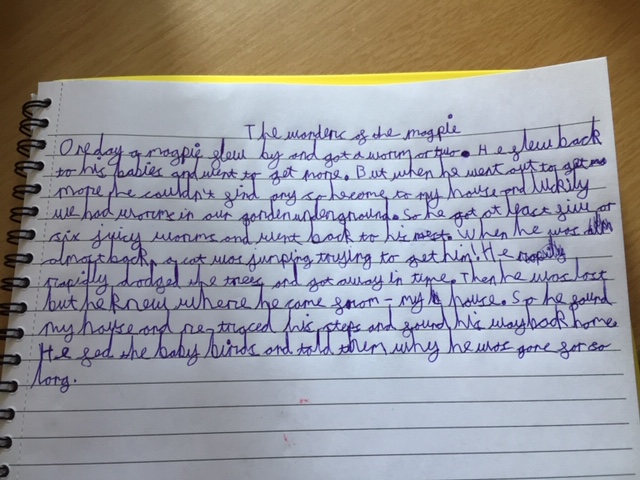 The wonders of the magpie
One day a magpie flew by and got a worm or two. He flew back
to his babies and went to get more. But when he went out to get
more he couldn't find any so he come to my house and luckily
we had worms in our garden underground. So he got at least five or
six juicy worms and went back to his nest. When he was
almost back, a cat was jumping trying to get him! He
rapidly dodged the trees and got away in time. Then he was lost
but he knew where he came from - my house. So he found
my house and re-traced his steps and found his way back home.
He fed the baby birds and told them why he was gone for so
long.